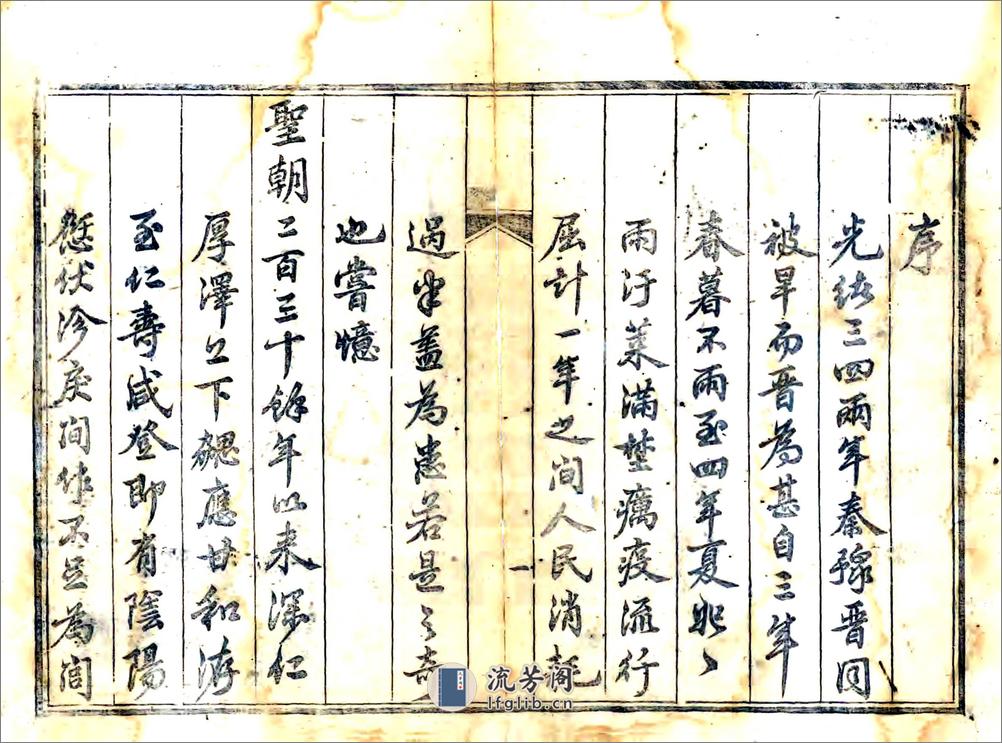 序
光緒三四兩年秦豫晉同
被旱而晉為甚自三年
春暮不雨至四年夏
雨汙萊滿埜癘疫流行
屈計一年之間人民消耗
過半蓋為患若是之奇
也嘗憶
聖朝二百三十餘年以來深仁
厚澤上下應甘和洊
至仁壽咸登即有陰陽
愆伏沴戾間作不足為閭
一
流芳阁
lfglib.cn